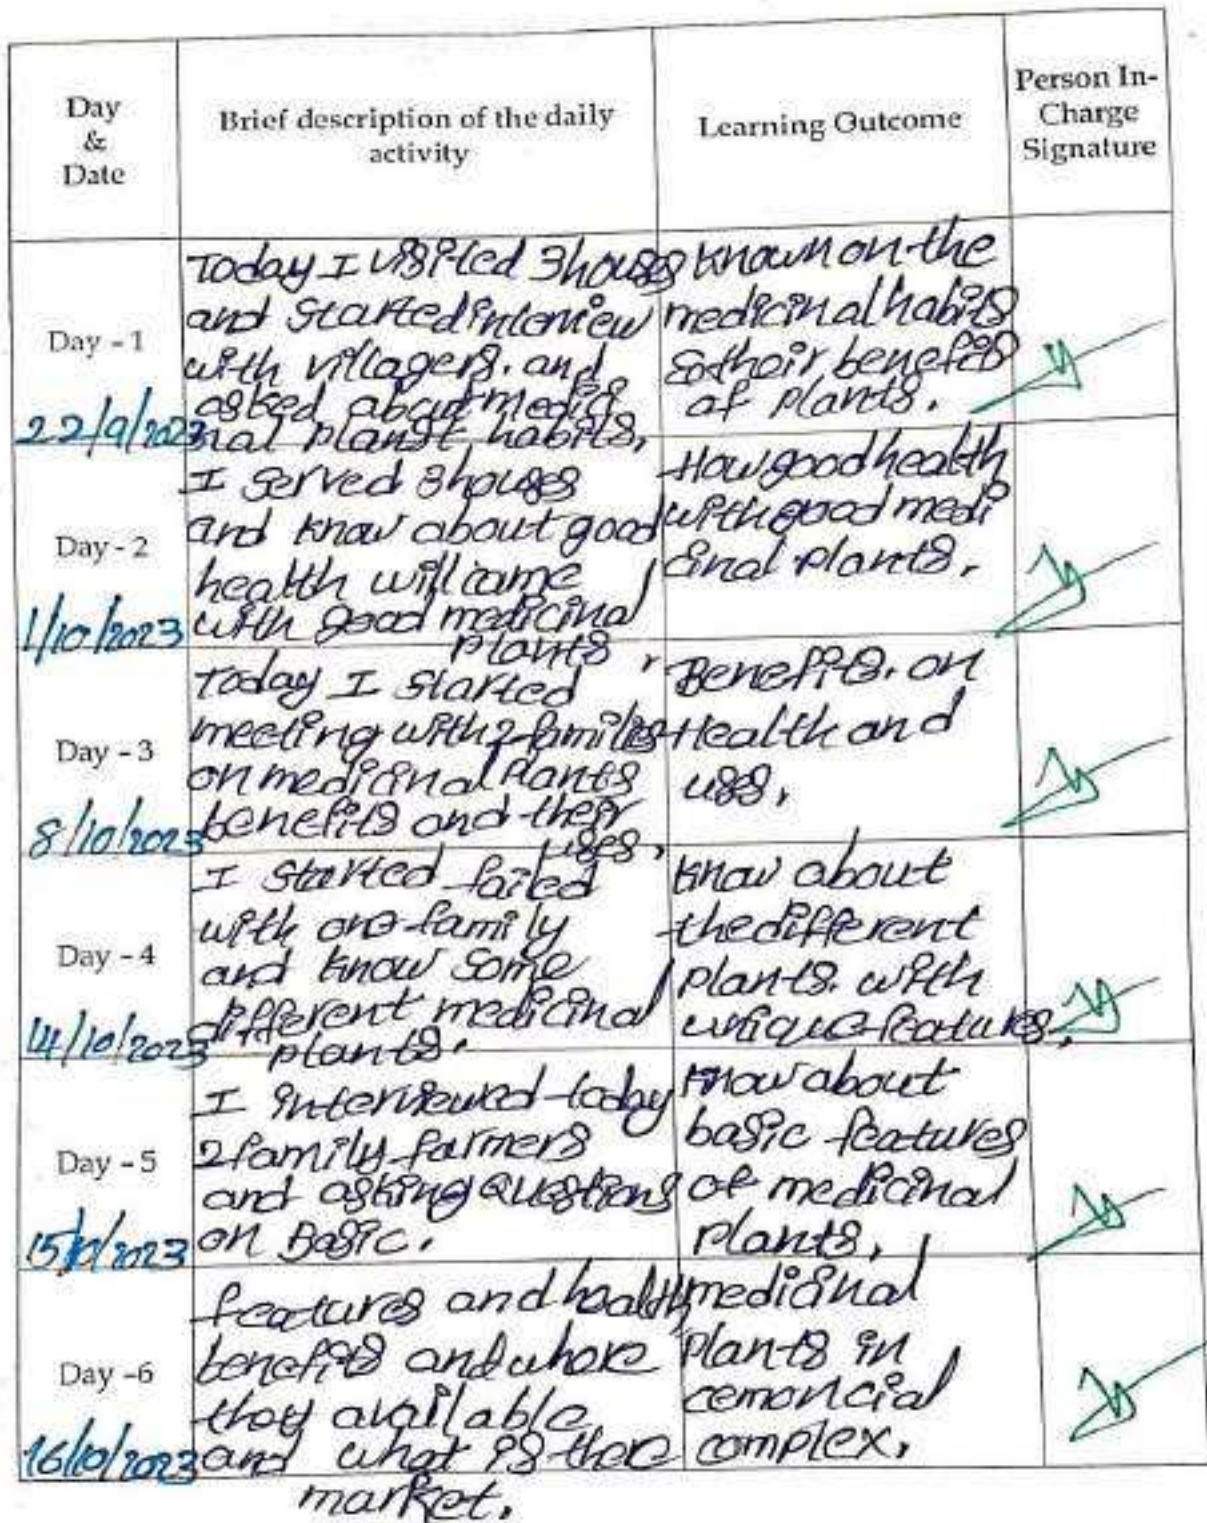 Day
&
Date
Brief description of the daily
activity
Learning Outcome
Person In-
Charge
Signature
Day - 1
22/9/2023
Today I visited 3 houses
and started interview
with villagers. and
asked about medici
nal planst habits,
known on the
medicinal habits
So their benefits
of plants.
Day - 2
1/10/2023
I served 3 houses
and know about good
health will came
with good medicinal
plants,
How good health
with good medi
cinal plants,
Day - 3
8/10/2023
Today I started
meeting with 2 families
on medicinal plants
benefits and their
uses,
Benefits. on
Health and
uses,
Day - 4
14/10/2023
I started failed
with one family
and know some
different medicinal
plants.
know about
the different
plants. with
unique features,
Day - 5
15/10/2023
I interviewed today
2 family farmers
and asking Questions
on Basic.
know about
basic features
of medicinal
plants,
Day -6
16/10/2023
features and health
benefits and whore
they available
and what is there
market.
medicinal
plants in
cemoncial
complex,